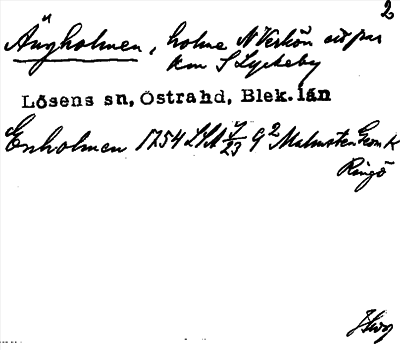 2
Ängholmen, holme N Verkön ett par
km S Lyckeby
Lösens sn, Östrahd, Blek. län
Enholmen 1754 LSA 7/23 9² Malmsten Geom K
Ringö